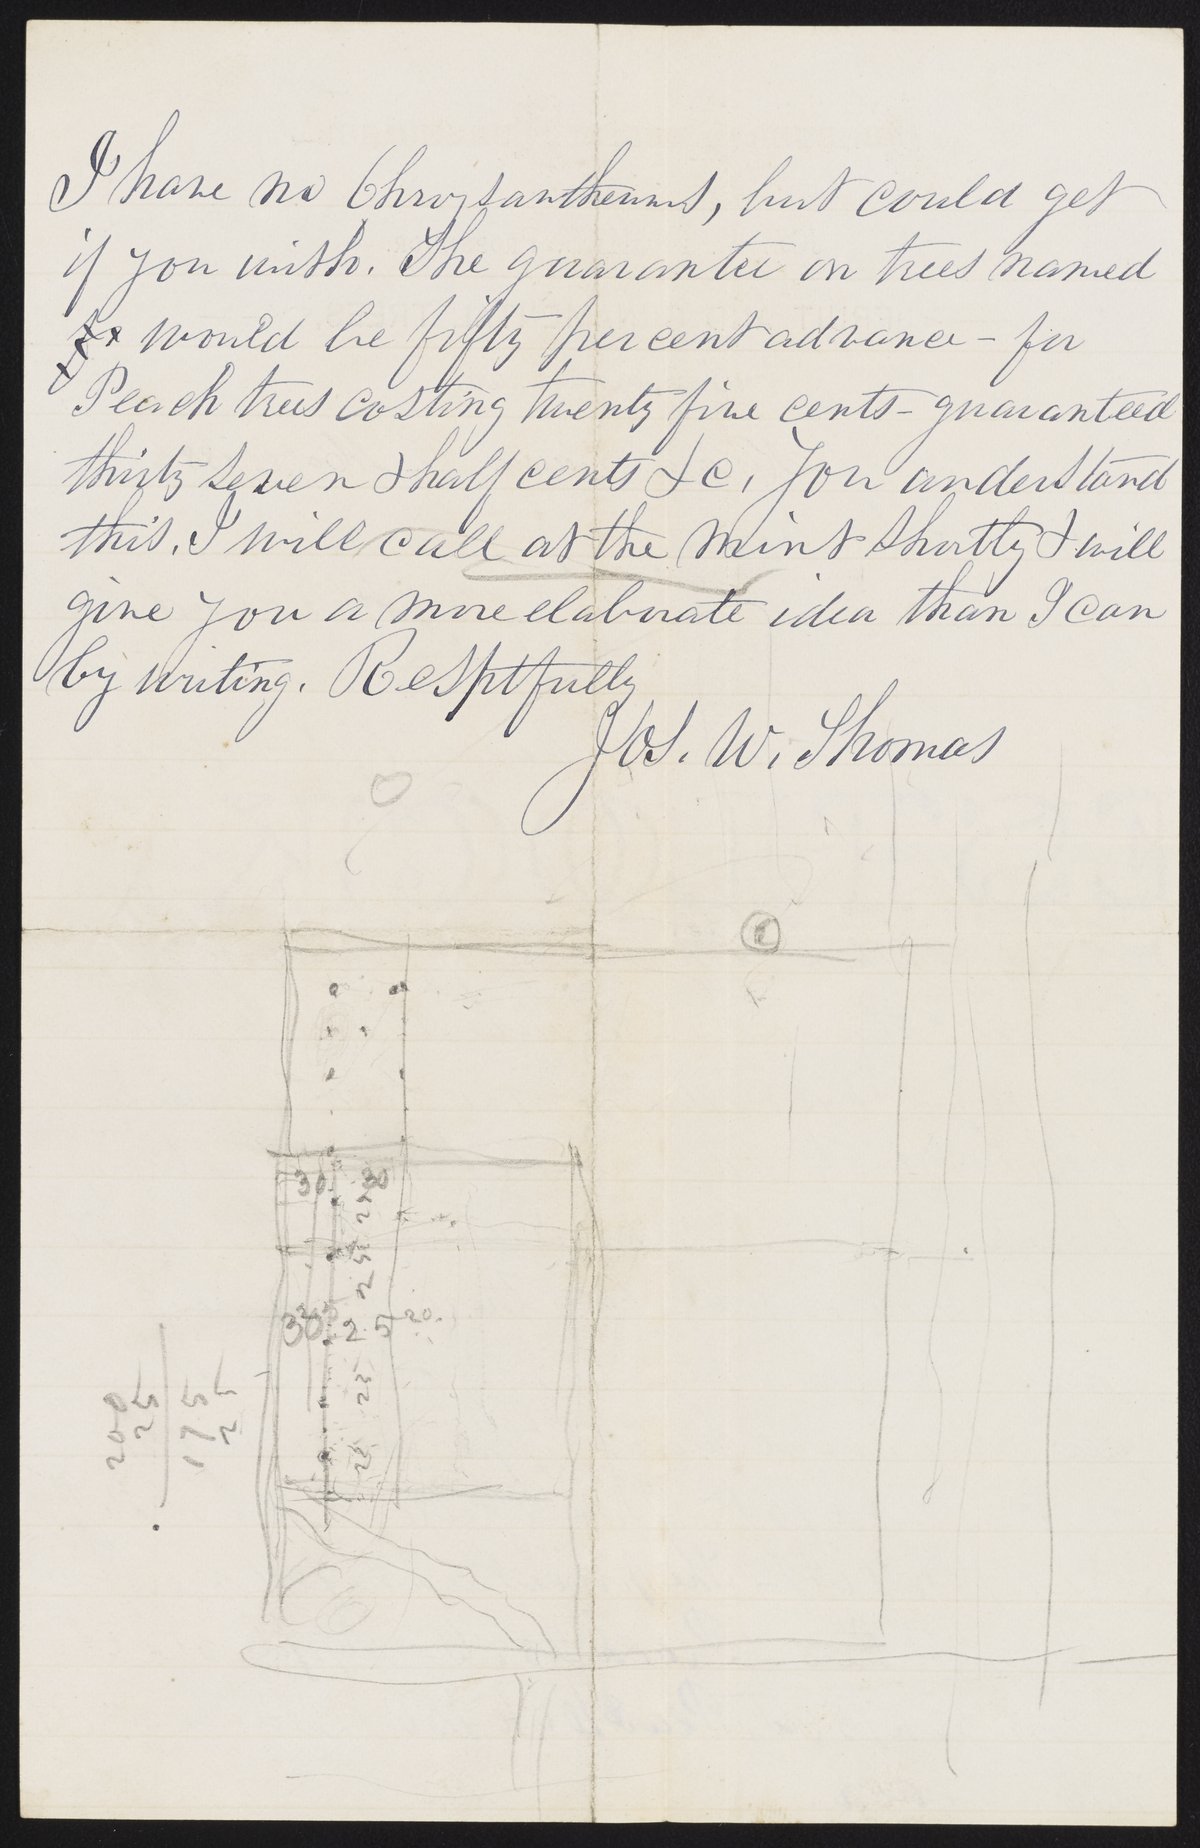 I have no Chrysanthemums, but could get
if you wish. The guarantee on trees named
would be fifty per cent advance - for
Peach trees costing twenty five cents - guaranteed
thirty seven & half cents &c. You understand
this. I will call at the mint shortly & will
give you a more elaborate idea than I can
by writing. Resptfully
Jos. W. Thomas
30 30
25
25
30 25 20
25
25
200
25
175